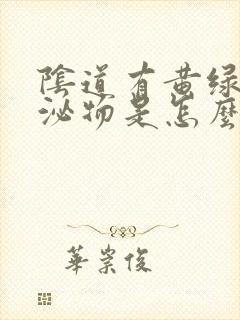 陰道有黃綠
泌物是怎麼
華崇俊